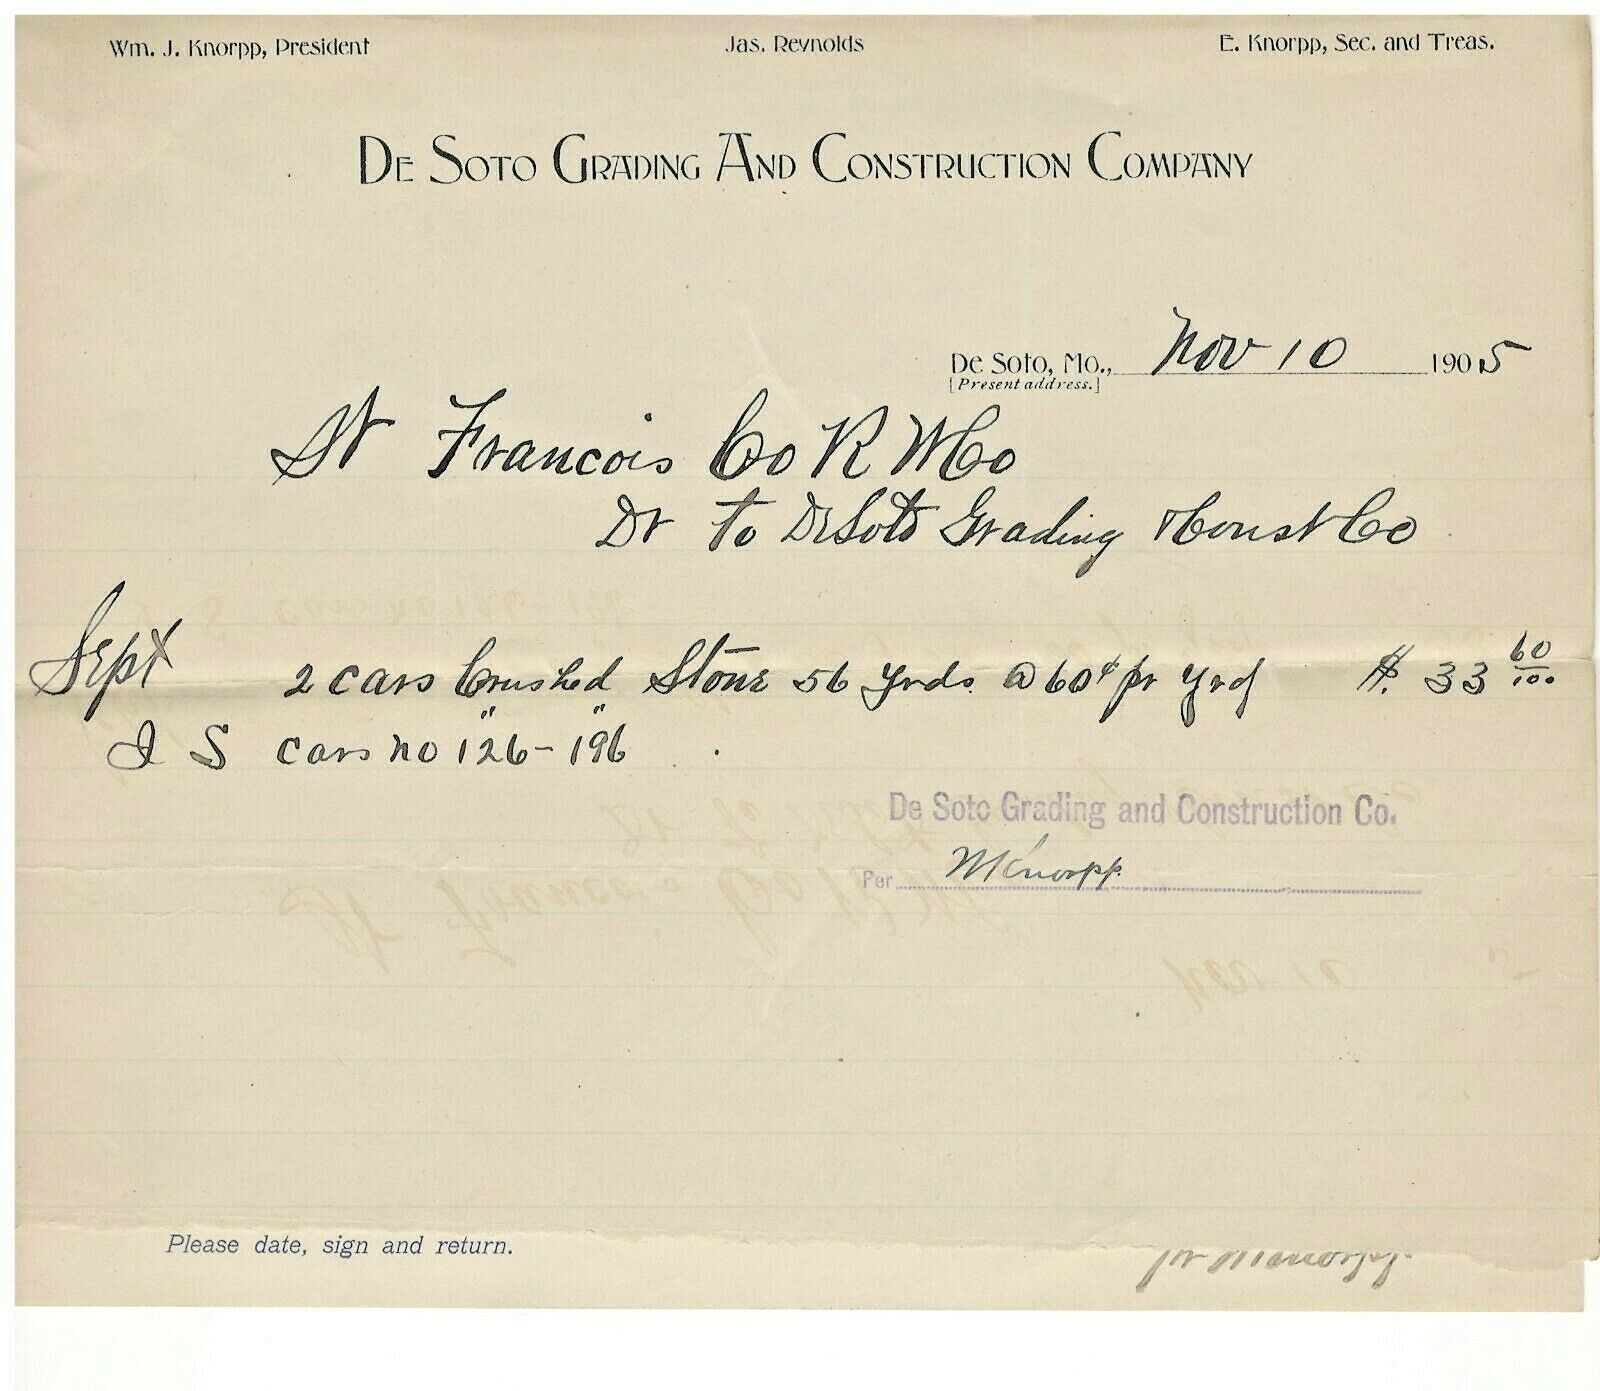 Wm. J. Knorpp, President Jas. Reynolds E. Knorpp, Sec. and Treas.
De Soto Grading And Construction Company
De Soto, Mo., Nov 10 1905
[Present address.]
St Francois Co R W Co
Dr to DeSoto Grading & Const Co
Sept 2 cars Crushed Stone 56 Yrds. @ 60¢ pr Yrd $. 33 60/100
I S cars no 126 - 196
De Soto Grading and Construction Co.
Per W Knorpp.
Please date, sign and return.
pr